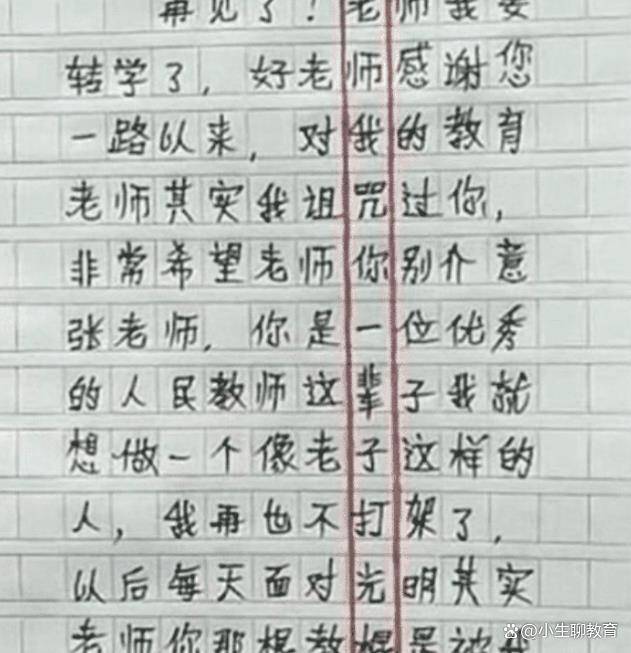 再见了！老师我要
转学了，好老师感谢您
一路以来，对我的教育
老师其实我诅咒过你，
非常希望老师你别介意
张老师，你是一位优秀
的人民教师这辈子我就
想做一个像老子这样的
人，我再也不打架了，
以后每天面对光明其实
老师你那根教棍是被我
小生聊教育